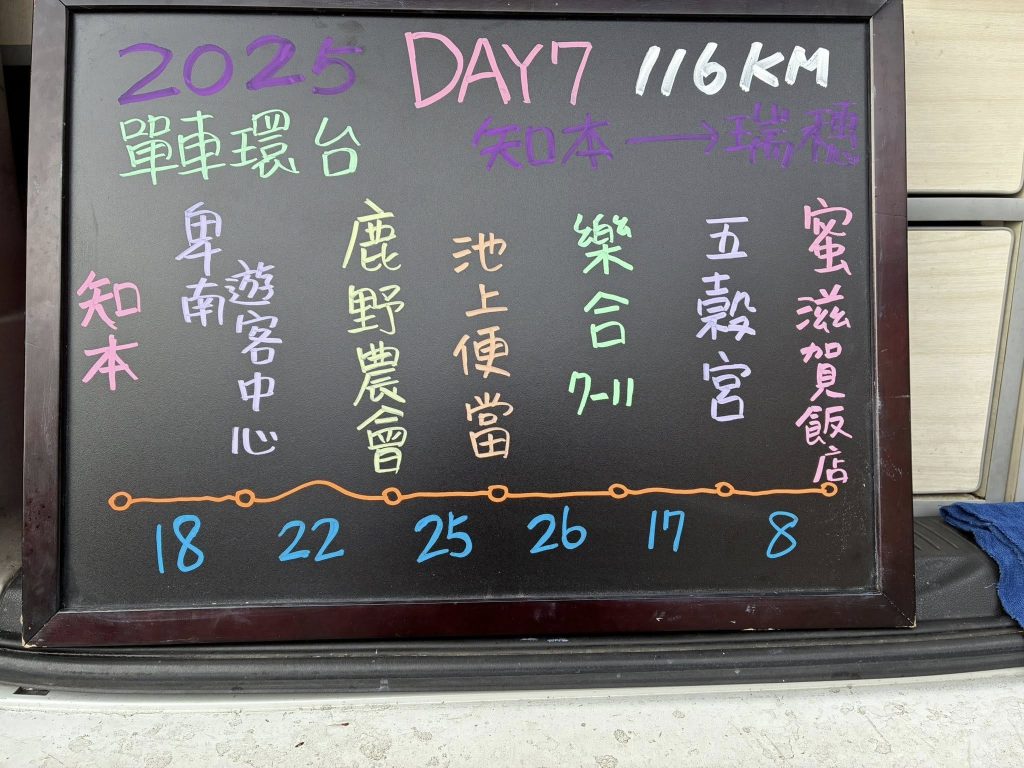 2025 DAY7 116KM
單車環台 知本→瑞穗
知本
卑南
遊客中心
鹿野農會
池上便當
樂合7-11
五穀宮
蜜滋賀飯店
18 22 25 26 17 8